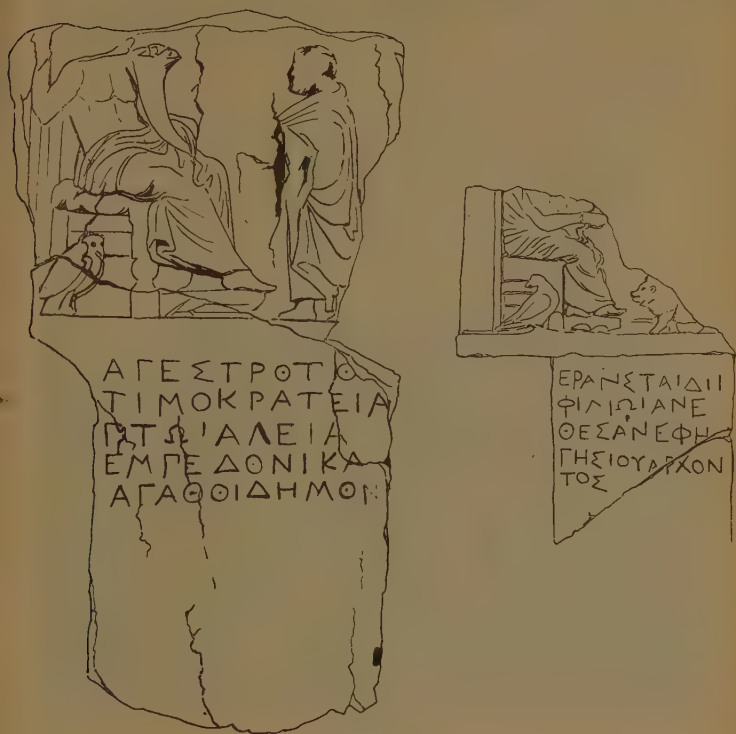 ΑΓΕΣΤΡΟΤΟ
ΤΙΜΟΚΡΑΤΕΙΑ
ΕΜΠΕΔΟΝΙΚΑ
ΑΓΑΘΟΙΔΗΜΟΝ
ΕΡΑΝΣΤΑΙΔΙΙ
ΦΙΛΙΩΙΑΝΕ
ΘΕΣΑΝΕΦΗ
ΓΗΣΙΟΥΑΡΧΟΝ
ΤΟΣ